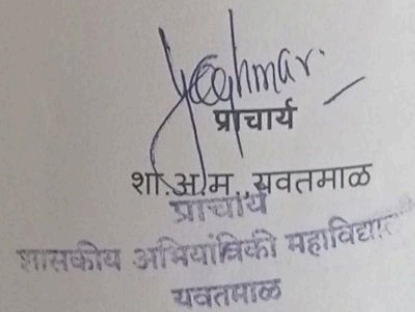 प्राचार्य
शा.अ.म.,यवतमाळ
प्राचार्य
शासकीय अभियांत्रिकी महाविद्या
यवतमाळ